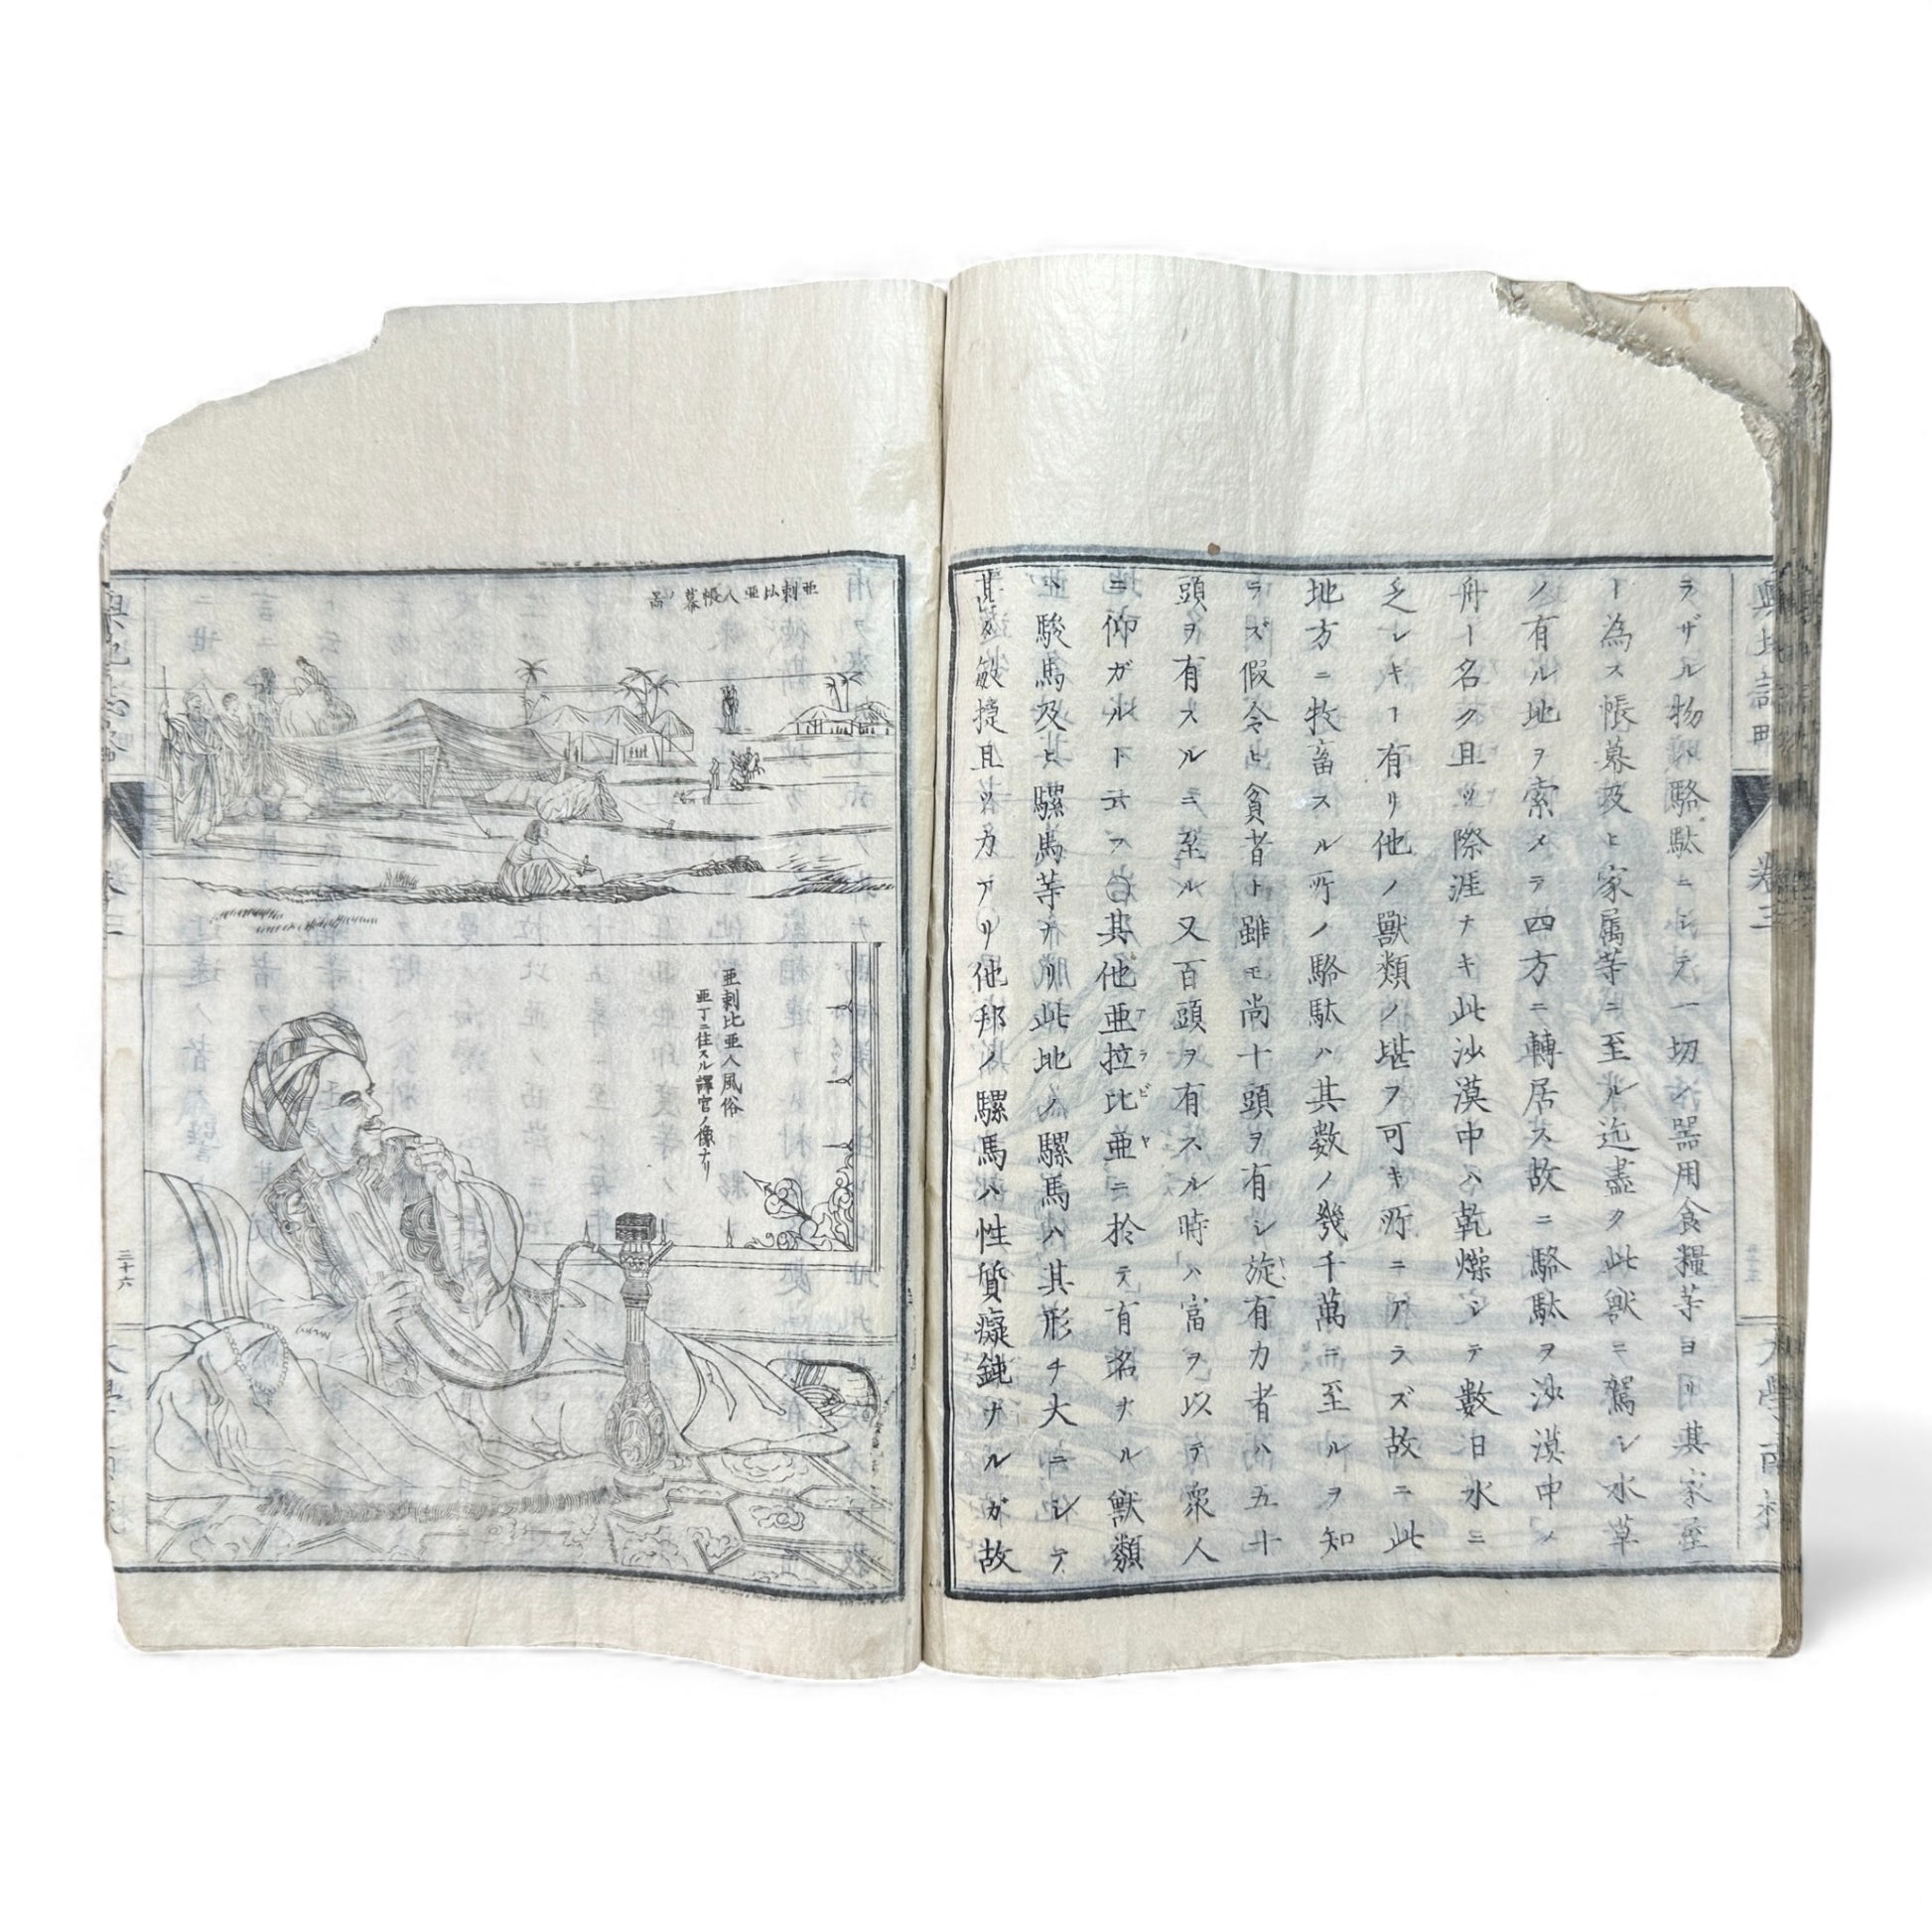 ラザル物駱駄ニシテ一切ノ器用食糧等ヨリ其家屋
ト為ス帳幕及ヒ家属等ニ至ル迄盡ク此獣ニ駕シ水草
ノ有ル地ヲ索メテ四方ニ轉居ス故ニ駱駄ヲ沙漠中ノ
舟ト名ク且ツ際涯ナキ此沙漠中ハ乾燥シテ数日水ニ
乏シキヿ有リ他ノ獣類ノ堪フ可キ所ニアラズ故ニ此
地方ニ牧畜スル所ノ駱駄ハ其数ノ幾千萬ニ至ルヲ知
ラズ假令ヒ貧者ト雖モ尚十頭ヲ有シ旋有力者ハ五十
頭ヲ有スルニ至ル又百頭ヲ有スル時ハ富ヲ以テ衆人
ニ仰ガルト云フ〇其他亜拉比亜ニ於テ有名ナル獣類
ハ駿馬及ヒ騾馬等ナリ此地ノ騾馬ハ其形チ大ニシテ
甚タ敏捷且ツ力アリ他邦ノ騾馬ハ性質癡鈍ナルガ故
亜剌比亜人帳幕ノ啚
亜剌比亜人風俗
亜丁ニ住スル譯官ノ像ナリ
三十六